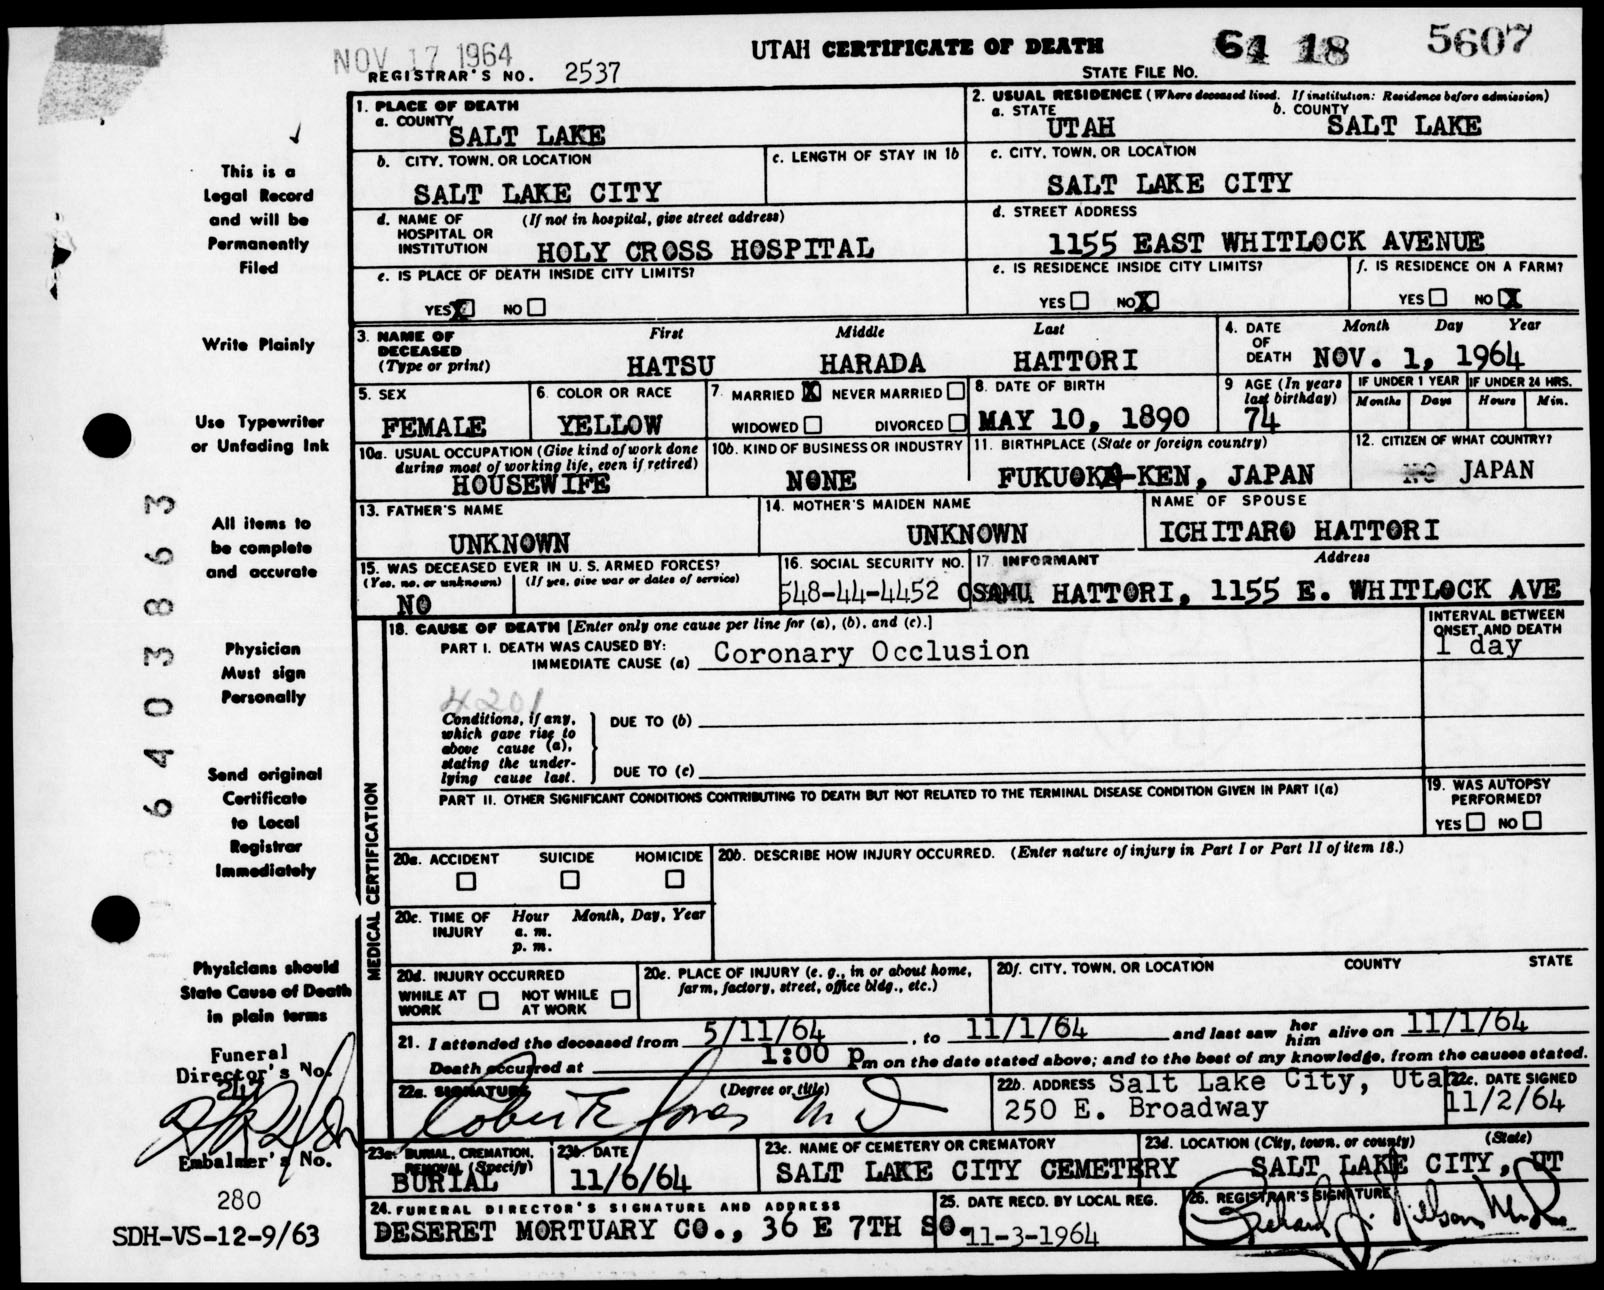 NOV 17 1964
UTAH CERTIFICATE OF DEATH
64 18 5607
REGISTRAR'S NO. 2537
STATE FILE NO.
This is a
Legal Record
and will be
Permanently
Filed
Write Plainly
Use Typewriter
or Unfading Ink
All items to
be complete
and accurate
Physician
Must sign
Personally
Send original
Certificate
to Local
Registrar
Immediately
Physicians should
State Cause of Death
in plain terms
Funeral
Director's No.
Embalmer's No.
280
SDH-VS-12-9/63
6403863
1. PLACE OF DEATH
a. COUNTY
SALT LAKE
2. USUAL RESIDENCE (Where deceased lived. If institution: Residence before admission)
a. STATE b. COUNTY
UTAH SALT LAKE
b. CITY, TOWN, OR LOCATION
SALT LAKE CITY
c. LENGTH OF STAY IN 1b
c. CITY, TOWN, OR LOCATION
SALT LAKE CITY
d. NAME OF HOSPITAL OR INSTITUTION (If not in hospital, give street address)
HOLY CROSS HOSPITAL
d. STREET ADDRESS
1155 EAST WHITLOCK AVENUE
e. IS PLACE OF DEATH INSIDE CITY LIMITS?
YES X NO
e. IS RESIDENCE INSIDE CITY LIMITS?
YES NO X
f. IS RESIDENCE ON A FARM?
YES NO X
3. NAME OF DECEASED (Type or print)
First Middle Last
HATSU HARADA HATTORI
4. DATE OF DEATH Month Day Year
NOV. 1, 1964
5. SEX
FEMALE
6. COLOR OR RACE
YELLOW
7. MARRIED X NEVER MARRIED
WIDOWED DIVORCED
8. DATE OF BIRTH
MAY 10, 1890
9 AGE (In years last birthday)
74
IF UNDER 1 YEAR IF UNDER 24 HRS.
Months Days Hours Min.
10a. USUAL OCCUPATION (Give kind of work done during most of working life, even if retired)
HOUSEWIFE
10b. KIND OF BUSINESS OR INDUSTRY
NONE
11. BIRTHPLACE (State or foreign country)
FUKUOKA-KEN, JAPAN
12. CITIZEN OF WHAT COUNTRY?
JAPAN
13. FATHER'S NAME
UNKNOWN
14. MOTHER'S MAIDEN NAME
UNKNOWN
NAME OF SPOUSE
ICHITARO HATTORI
15. WAS DECEASED EVER IN U. S. ARMED FORCES?
(Yes, no, or unknown) (If yes, give war or dates of service)
NO
16. SOCIAL SECURITY NO.
548-44-4452
17 INFORMANT Address
OSAMU HATTORI, 1155 E. WHITLOCK AVE
MEDICAL CERTIFICATION
18. CAUSE OF DEATH [Enter only one cause per line for (a), (b), and (c).]
INTERVAL BETWEEN ONSET AND DEATH
PART I. DEATH WAS CAUSED BY:
IMMEDIATE CAUSE (a) Coronary Occlusion
1 day
4201
Conditions, if any, which gave rise to above cause (a), stating the underlying cause last.
DUE TO (b)
DUE TO (c)
PART II. OTHER SIGNIFICANT CONDITIONS CONTRIBUTING TO DEATH BUT NOT RELATED TO THE TERMINAL DISEASE CONDITION GIVEN IN PART I(a)
19. WAS AUTOPSY PERFORMED?
YES NO
20a. ACCIDENT SUICIDE HOMICIDE
20b. DESCRIBE HOW INJURY OCCURRED. (Enter nature of injury in Part I or Part II of item 18.)
20c. TIME OF INJURY Hour Month, Day, Year
a. m.
p. m.
20d. INJURY OCCURRED
WHILE AT WORK NOT WHILE AT WORK
20e. PLACE OF INJURY (e. g., in or about home, farm, factory, street, office bldg., etc.)
20f. CITY, TOWN, OR LOCATION COUNTY STATE
21. I attended the deceased from 5/11/64, to 11/1/64 and last saw her him alive on 11/1/64
Death occurred at 1:00 Pm on the date stated above; and to the best of my knowledge, from the causes stated.
22a. SIGNATURE (Degree or title)
Robert E Jones M D
22b. ADDRESS Salt Lake City, Uta
250 E. Broadway
22c. DATE SIGNED
11/2/64
23a. BURIAL, CREMATION, REMOVAL (Specify)
BURIAL
23b. DATE
11/6/64
23c. NAME OF CEMETERY OR CREMATORY
SALT LAKE CITY CEMETERY
23d. LOCATION (City, town, or county) (State)
SALT LAKE CITY, UT
24. FUNERAL DIRECTOR'S SIGNATURE AND ADDRESS
DESERET MORTUARY CO., 36 E 7TH SO.
25. DATE RECD. BY LOCAL REG.
11-3-1964
26. REGISTRAR'S SIGNATURE
Richard J. Nelson